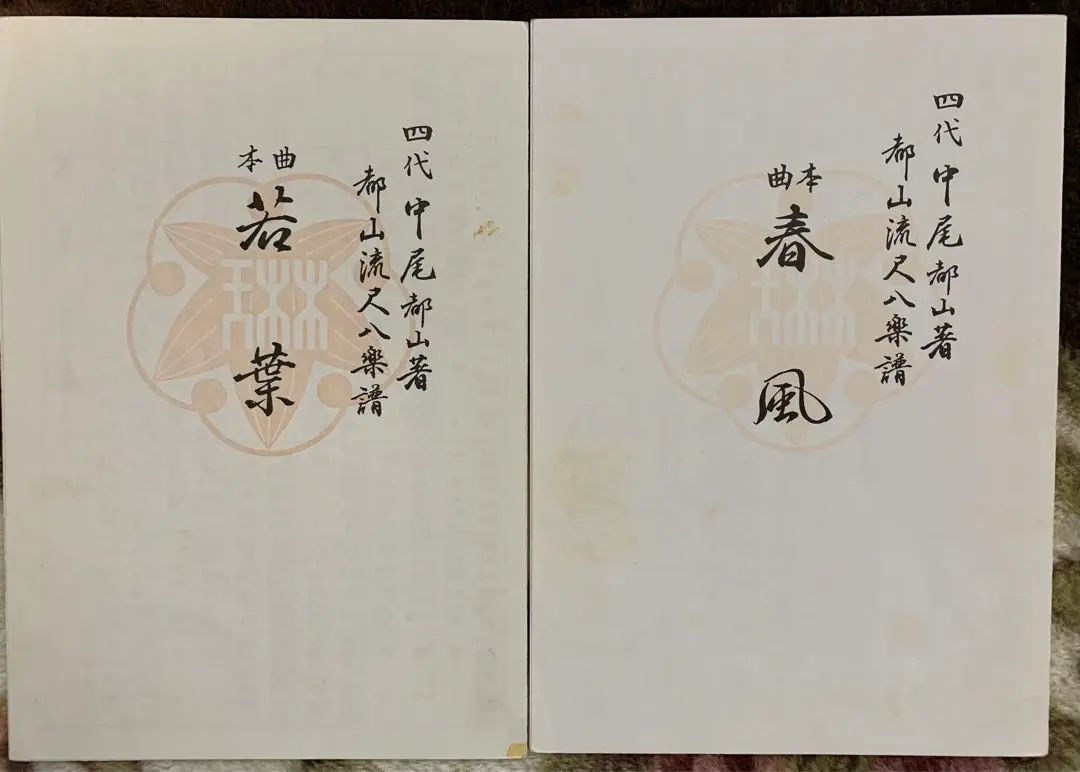 四代 中尾都山著
都山流尺八楽譜
本曲
若葉
四代 中尾都山著
都山流尺八楽譜
本曲
春風